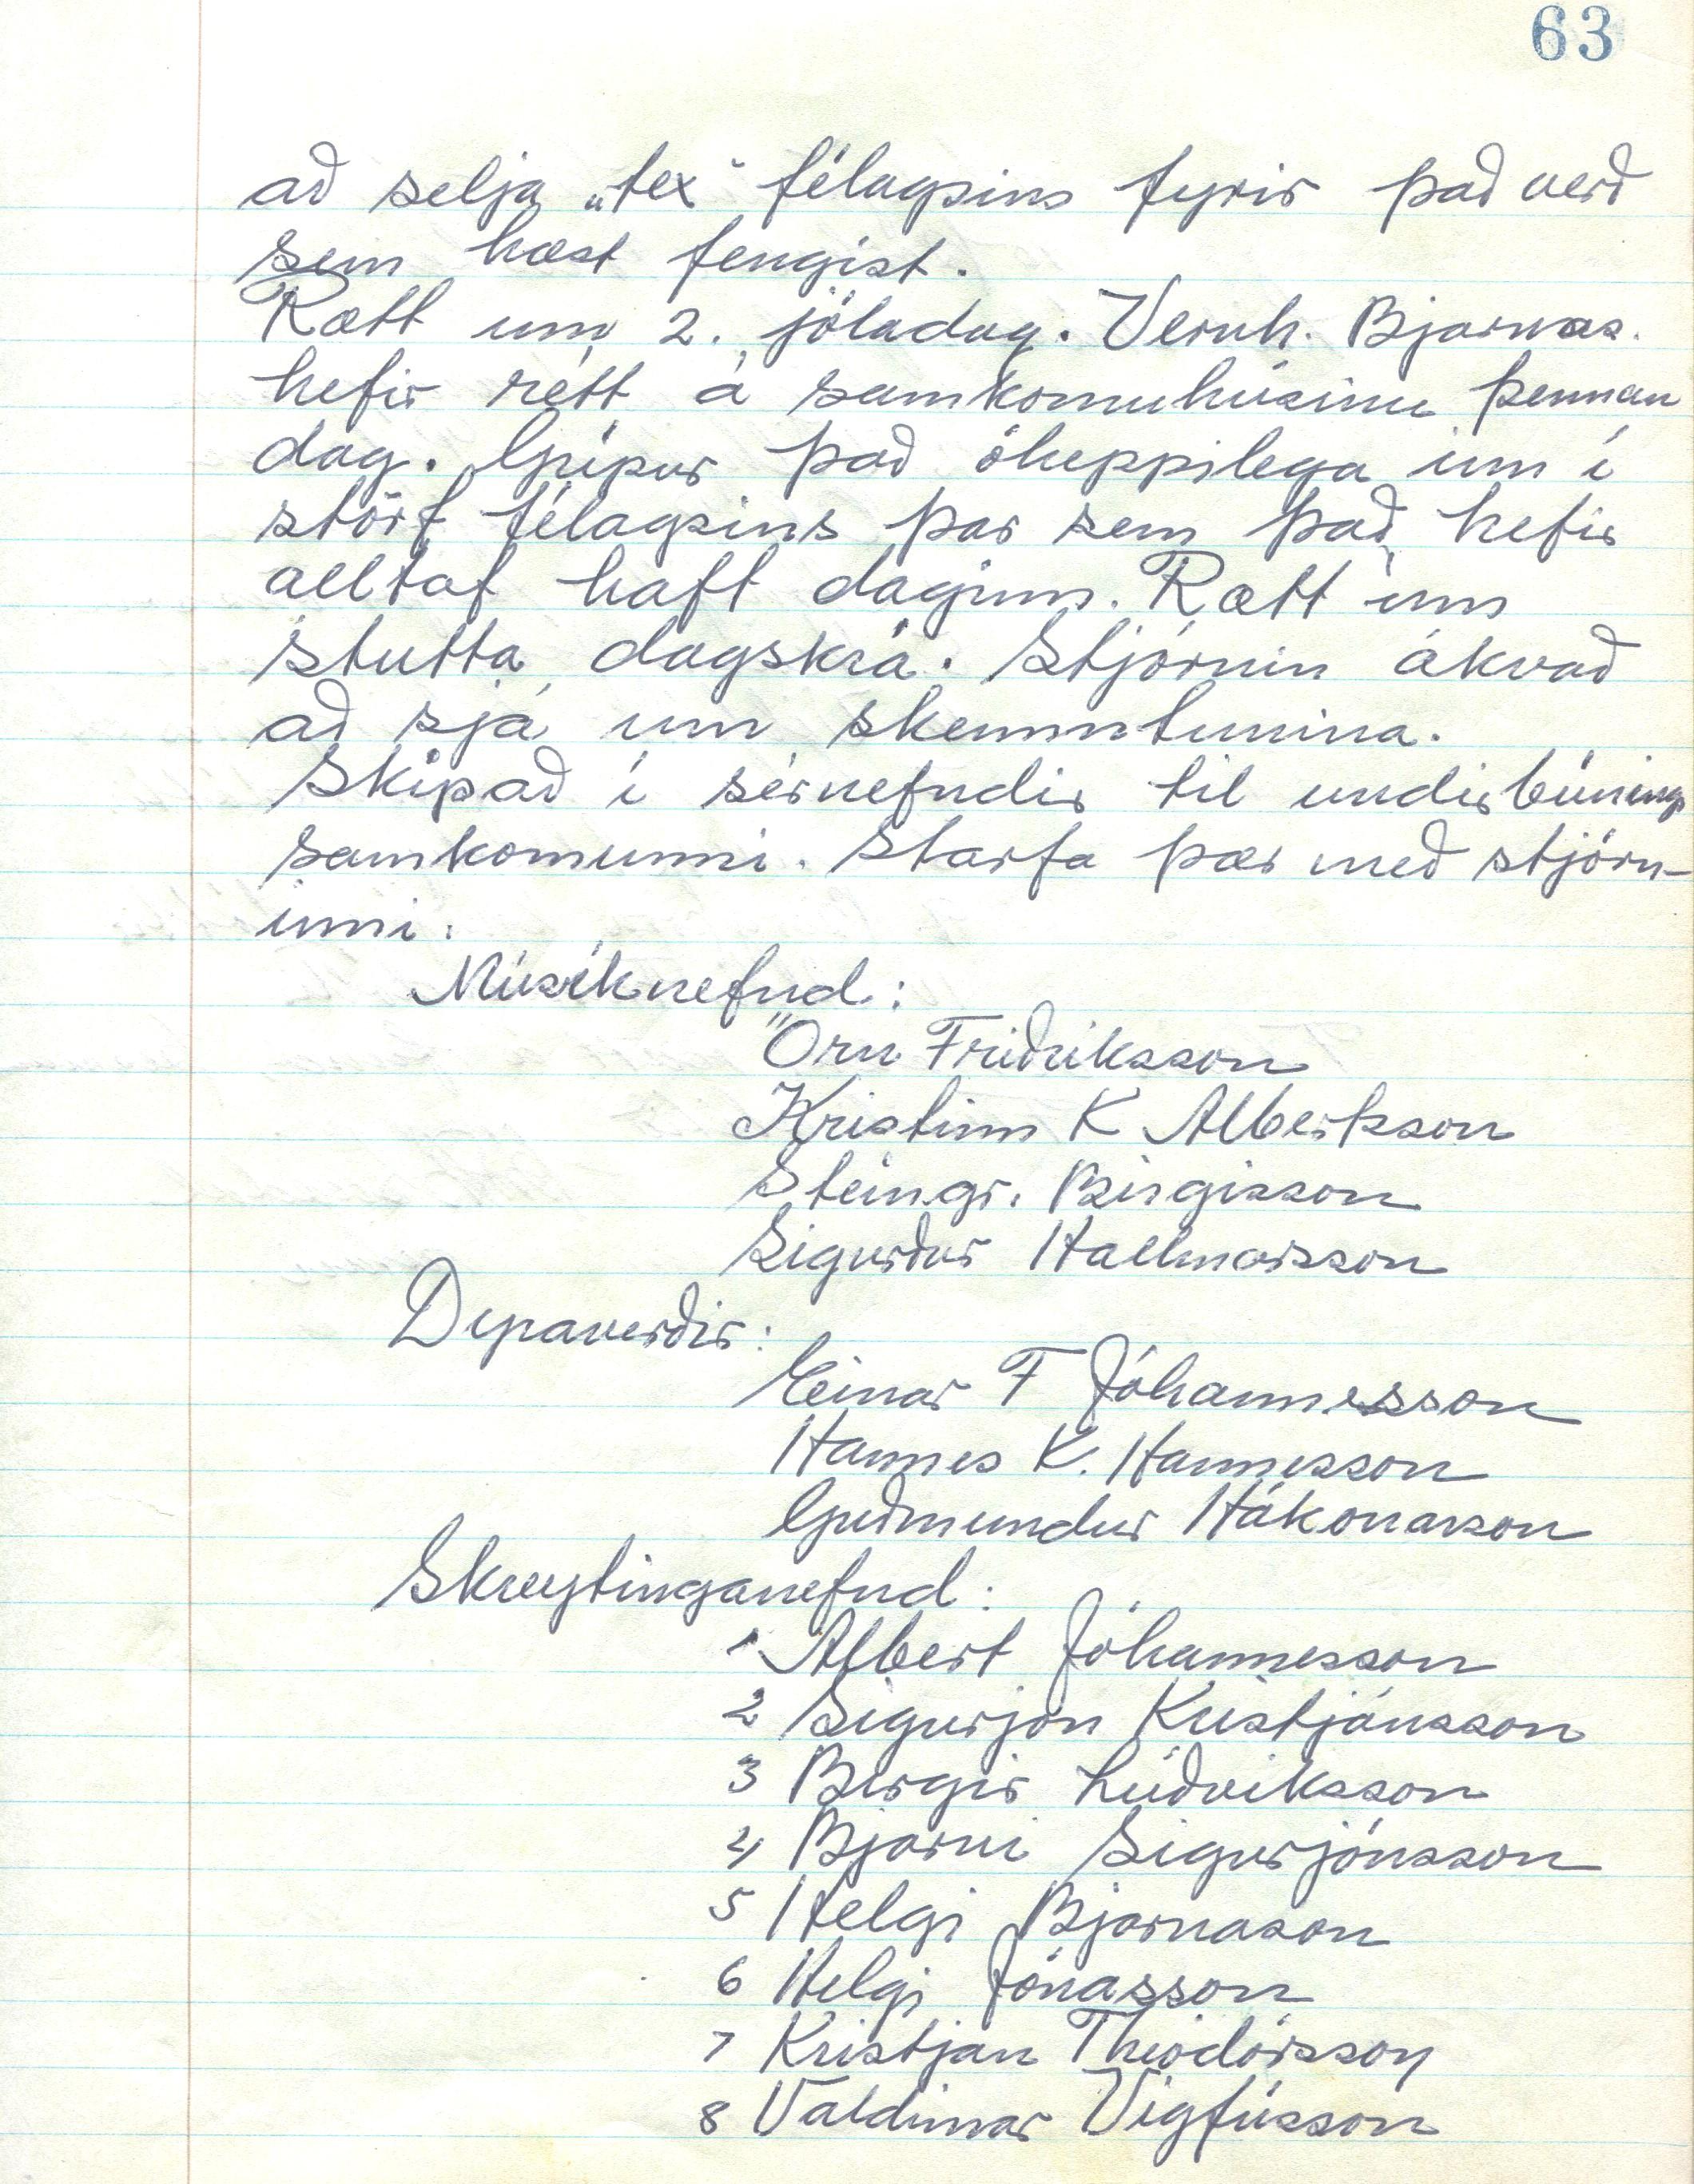 63
að selja „tex“ félagsins fyrir það verð
sem hæst fengist.
Rætt um 2. jóladag. Vernh. Bjarnas.
hefir rétt á samkomuhúsinu þennan
dag. Grípur það óheppilega inn í
störf félagsins þar sem það hefir
alltaf haft daginn. Rætt um
stutta dagskrá. Stjórnin ákvað
að sjá um skemmtunina.
Skipað í sérnefndir til undirbúnings
samkomunni. Starfa þær með stjórn-
inni.
Músíknefnd:
Örn Friðriksson
Kristinn K Albertsson
Steingr. Birgisson
Sigurður Hallmarsson
Dyraverðir:
Einar F Jóhannesson
Hannes K. Hannesson
Guðmundur Hákonarson
Skreytinganefnd:
1 Albert Jóhannesson
2 Sigurjón Kristjánsson
3 Birgir Lúðviksson
4 Bjarni Sigurjónsson
5 Helgi Bjarnason
6 Helgi Jónasson
7 Kristjan Theódórsson
8 Valdimar Vigfússon